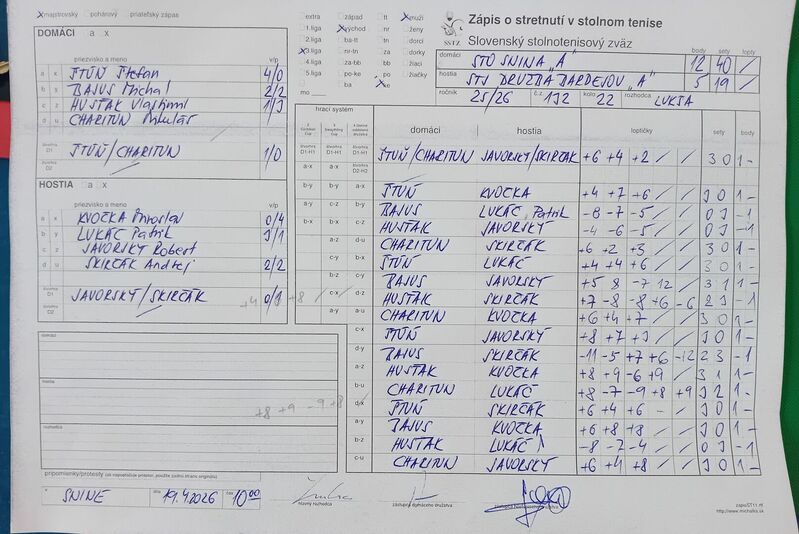 majstrovský pohárový priateľský zápas
DOMÁCI a x
priezvisko a meno v/p
a x ŠTÚŇ Štefan 4/0
b y BAJUS Michal 2/2
c z HUSŤAK Vlastimil 1/3
d u CHARITUN Mikuláš
štvorhra D1 ŠTÚŇ/CHARITUN 1/0
D2
HOSTIA a x
priezvisko a meno v/p
a x KVOČKA Miroslav 0/4
b y LUKÁČ Patrik 3/1
c z JAVORSKÝ Robert
d u SKIRČÁK Andrej 2/2
štvorhra D1 JAVORSKÝ/SKIRČÁK 0/1
D2
domáci
hostia
rozhodca
pripomienky/protesty (ak nepostačuje priestor, použite zadnú stranu originálu)
v SNINE dňa 19.4.2026 čas 10:00
hlavný rozhodca zástupca domáceho družstva zástupca hosťovského družstva
extra západ tt muži
1.liga východ nr ženy
2.liga ba-tt tn dorci
3.liga nr-tn za dorky
4.liga za-bb bb žiaci
5.liga po-ke po žiačky
mo ba ke
SSTZ
Zápis o stretnutí v stolnom tenise
Slovenský stolnotenisový zväz
body sety lopty
domáci STO SNINA „A" 12 40 /
hostia STJ DRUŽBA BARDEJOV „A" 5 19 /
ročník 25/26 č.z 132 kolo 22 rozhodca LUKSA
hrací systém domáci hostia loptičky sety body
ŠTÚŇ/CHARITUN JAVORSKÝ/SKIRČÁK +6 +4 +2 / / 3 0 1 -
b-y b-y a-x ŠTÚŇ KVOČKA +4 +7 +6 / / 3 0 1 -
a-y c-z b-y BAJUS LUKÁČ Patrik -8 -7 -5 / / 0 3 - 1
b-x b-x c-z HUSŤAK JAVORSKÝ -4 -6 -5 / / 0 3 - 1
a-z d-u CHARITUN SKIRČÁK +6 +2 +3 / / 3 0 1 -
c-y b-x ŠTÚŇ LUKÁČ +4 +4 +6 / / 3 0 1 -
b-z c-y BAJUS JAVORSKÝ +5 8 -7 12 / 3 1 1 -
c-x d-z HUSŤAK SKIRČÁK +7 -8 -8 +6 -6 2 3 - 1
a-y a-u CHARITUN KVOČKA +6 +4 +7 / / 3 0 1 -
c-x ŠTÚŇ JAVORSKÝ +8 +7 +3 / / 3 0 1 -
d-y BAJUS SKIRČÁK -11 -5 +7 +6 -12 2 3 - 1
a-z HUSŤAK KVOČKA +8 +9 -6 +9 / 3 1 1 -
b-u CHARITUN LUKÁČ +8 -7 -9 +8 +9 3 2 1 -
d-x ŠTÚŇ SKIRČÁK +6 +4 +6 - / 3 0 1 -
a-y BAJUS KVOČKA +6 +8 +8 / / 3 0 1 -
b-z HUSŤAK LUKÁČ -8 -7 -4 / / 0 3 - 1
c-u CHARITUN JAVORSKÝ +6 +4 +8 / / 3 0 1 -
+8 +9 -9 +8
www.michalko.sk